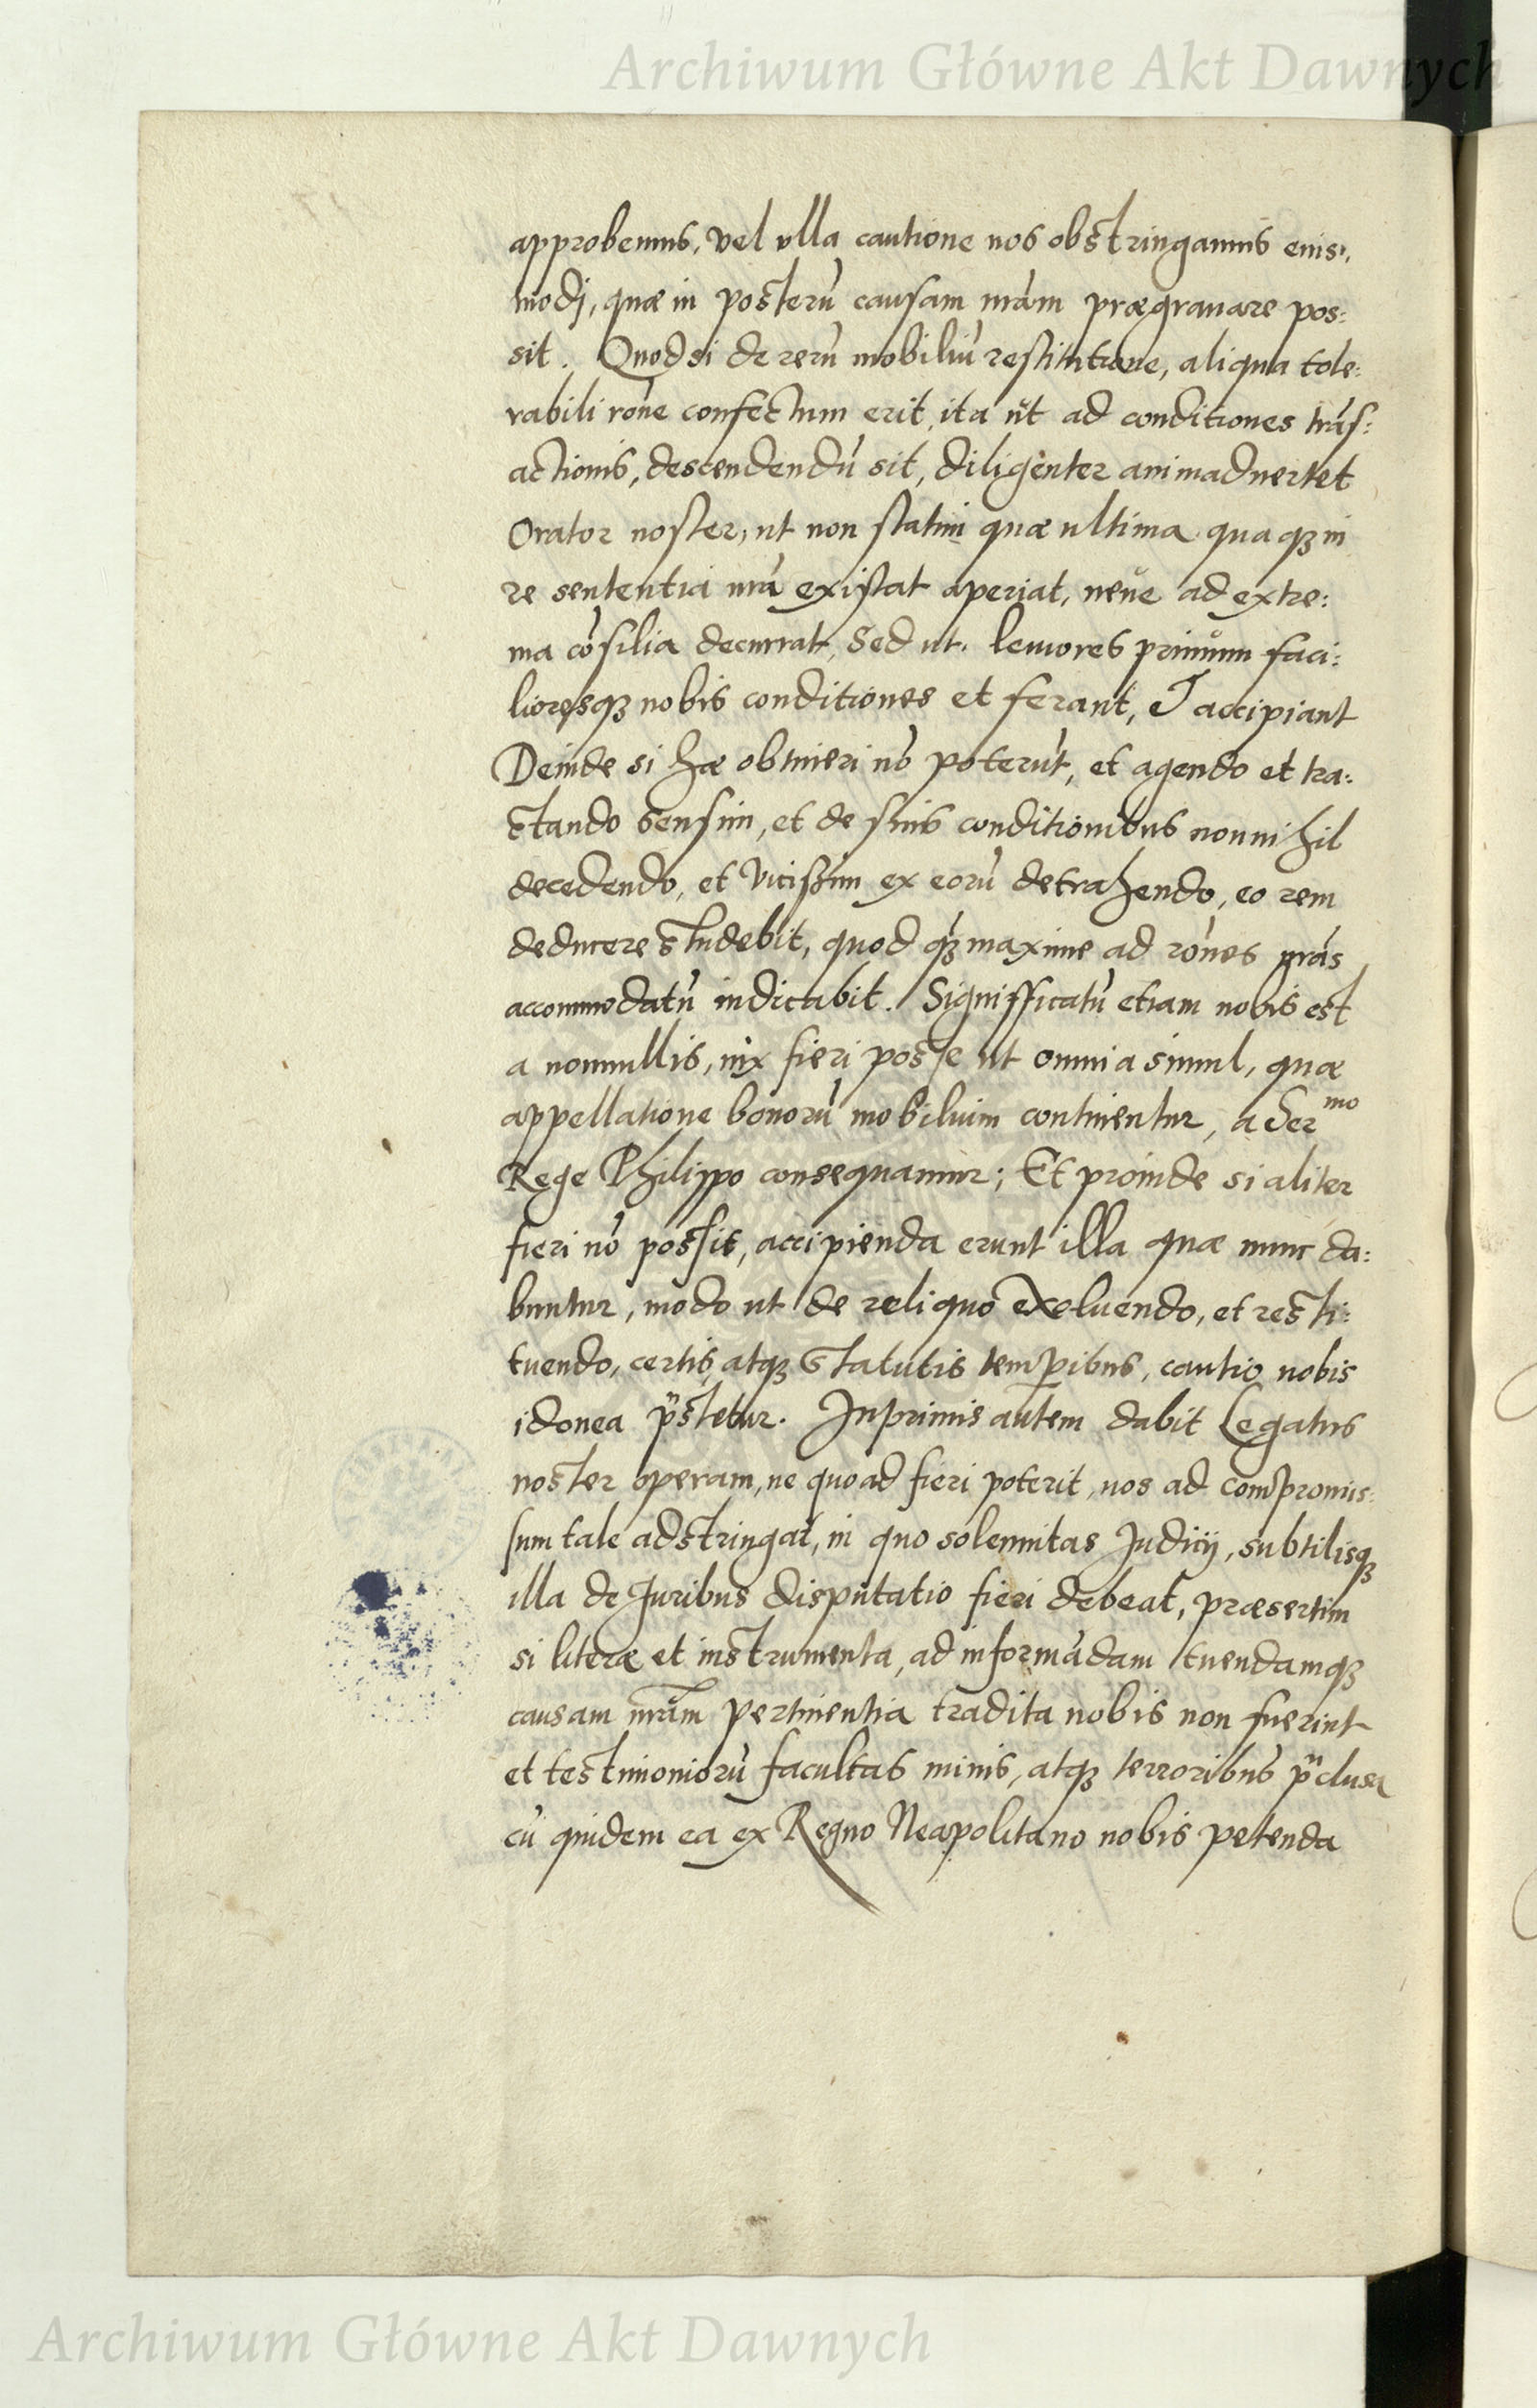 Archiwum Główne Akt Dawnych
approbemus, vel ulla cautione nos obstringamus eius:
modj, quæ in posterù causam nrám prægrauare pos:
sit. Quod si de rerù mobiliù restitutione, aliqua tole:
rabili róne confectum erit, ita ut ad conditiones trás:
actionis, descendendù sit, diligenter animaduertet
Orator noster, ut non statim quæ ultima quaqz in
re sententia nrá existat aperiat, neue ad extre:
ma cósilia decurrat, Sed ut leuiores primùm faci:
lioresqz nobis conditiones et ferant, & accipiant
Deinde si hæ obtineri nó poterút, et agendo et tra:
ctando sensim, et de suis conditionibus nonnihil
decedendo, et vicissim ex eorù detrahendo, eo rem
deducere studebit, quod qz maxime ad rónes nrás
accommodatù iudicabit. Signifficatù etiam nobis est
a nonnullis, uix fieri posse ut omnia simul, quæ
appellatione bonorù mobilium continentur, a Ser^mo
Rege Philippo consequamur; Et proinde si aliter
fieri nó possit, accipienda erunt illa quæ nunc da:
buntur, modo ut de reliquo exoluendo, et resti:
tuendo, certis, atqz statutis tempibus, cautio nobis
idonea pstetur. Inprimis autem dabit Legatus
noster operam, ne quoad fieri poterit, nos ad compromis:
sum tale adstringat, in quo solennitas Judicij, subtilisqz
illa de Juribus disputatio fieri debeat, præsertim
si literæ et instrumenta, ad informádam tuendamqz
causam nrám pertinentia tradita nobis non fuerint
et testimoniorù facultas minis, atqz terroribus pclusa
cù quidem ea ex Regno Neapolitano nobis petenda
Archiwum Główne Akt Dawnych